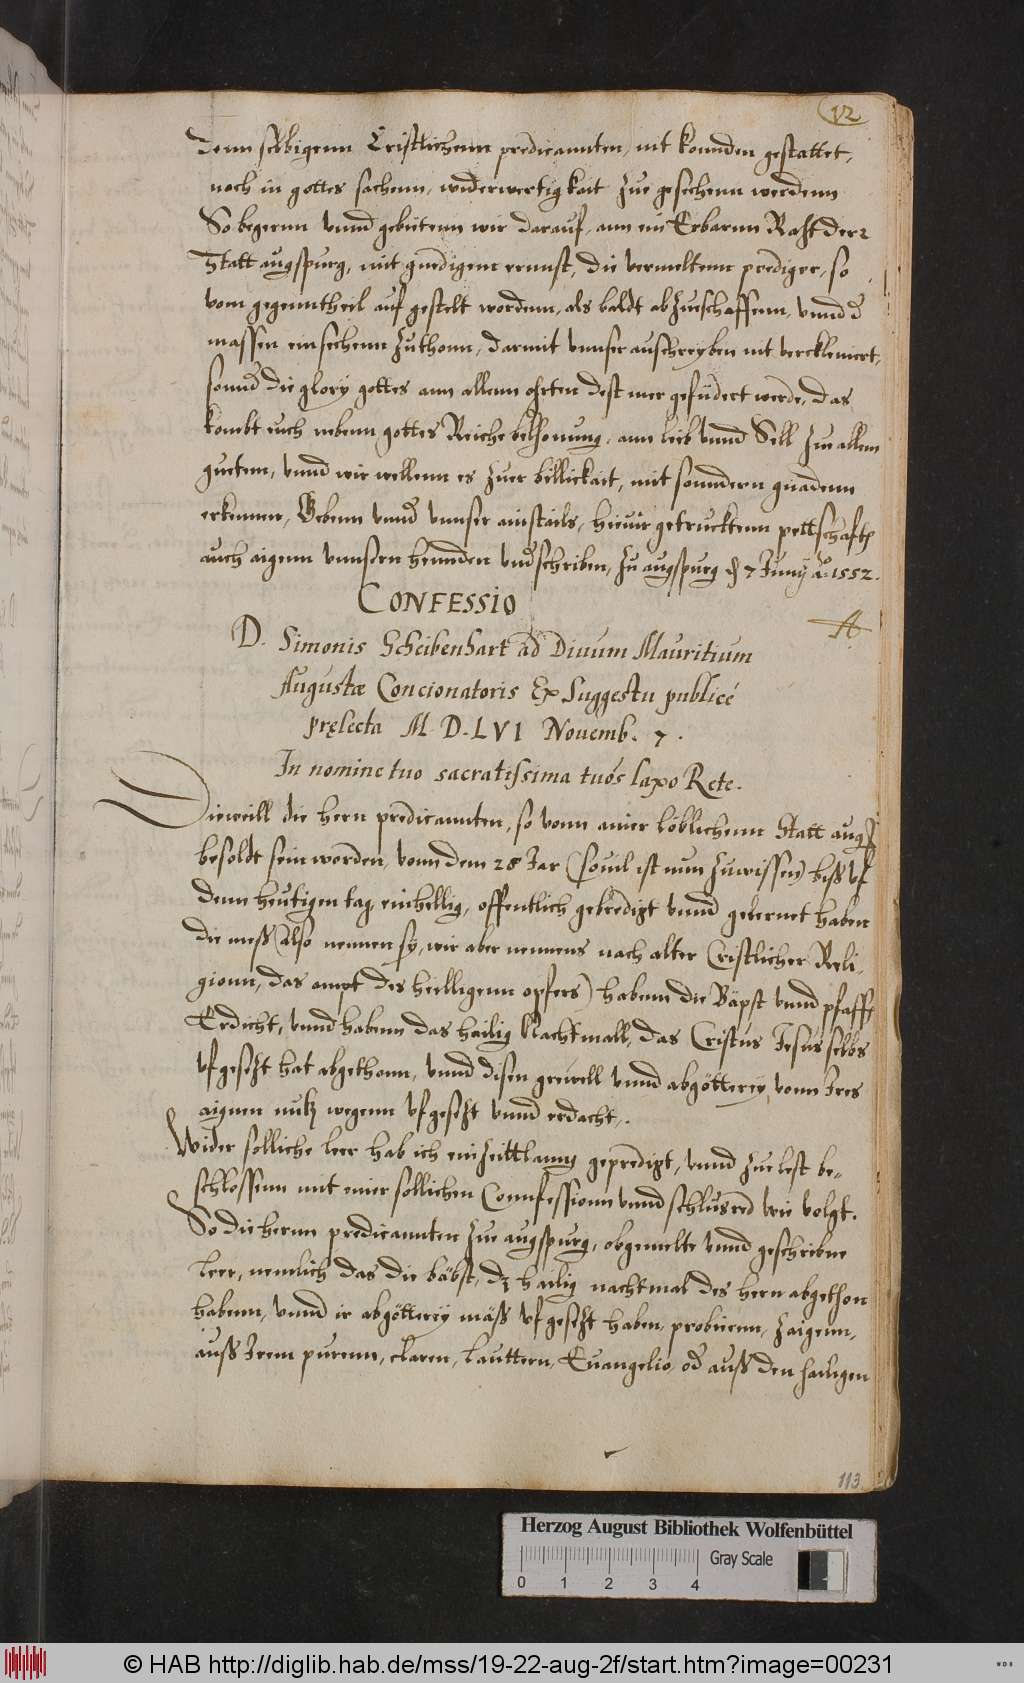 12
denn selbigenn Cristlichenn predicannten, nit konnden gestattet,
noch in gottes sachenn, widerwertigkait zue geschehenn werdenn
So begerenn vnnd gebietenn wir darauf, ann ein Erbarnn Raht der
Statt augspurg, mit gnedigem ernnst, die vermeltenn prediger, so
vom gegenntheil auf gestelt wordenn, als baldt abzueschaffenn, vnnd d
massen einsehenn zuthonn, darmit vnnser ausschreyben nit verckleinert,
sonnd die glory gottes ann allenn ohrten dest mer gefüdert werde, das
kombt euch nebenn gottes Reiche belhonung, ann leib vnnd Sell zue allem
guetem, vnnd wir wellenn es zuer billickait, mit sonndern gnadenn
erkennen, Gebenn vnnd vnnser ainstails, hiefür getrucktenn pettschafft
auch aigenn vnnsern hennden vndschriben, zu augspurg d 7 Juny ao 1552.
CONFESSIO
A
D. Simonis Scheibenhart ad Diuum Mauritium
Augustæ Concionatoris Ex Suggestu publicé
pręlecta M. D. LVI Nouemb. 7.
In nomine tuo sacratissima tuós laxo Rete.
Dieweill die hern predicannten, so vonn ainer löblichenn Statt augs
besoldt sein worden, vonn dem 28 Jar (souil ist nun zuwissen) biß vf
denn heutigen tag, einhellig, offentlich gebredigt vnnd gelernet haben
die meß (also nennen sy, wir aber nennens nach alter Cristlicher Reli,
gionn, das ampt des heilligenn opfers) habenn die Bäpst vnnd pfaffen
Erdicht, vnnd habenn das hailig Nachtmall, das Cristus Jesus selbs
vfgesetzt hat abgethonn, vnnd disen grewell vnnd abgötterey, vonn Ires
aignen nutz wegenn vfgesetzt vnnd erdacht.
Wider solliche leer hab ich ein zeittlanng gepredigt, vnnd zue lest be,,
schlossenn mit einer sollichen Connfessionn vnnd schlusred wie volgt.
So die herrnn predicannten zue augspurg, obgemelte vnnd geschribne
leer, nemlich das die bäbst, dz hailig nachtmal des hern abgethon
habenn, vnnd ir abgötterey mäß vfgesetzt haben, probirenn, zaigenn,
auß Irem purenn, claren, lauttern, Euangelio, od auß den hailigen
113
Herzog August Bibliothek Wolfenbüttel
Gray Scale
0 1 2 3 4
© HAB http://diglib.hab.de/mss/19-22-aug-2f/start.htm?image=00231